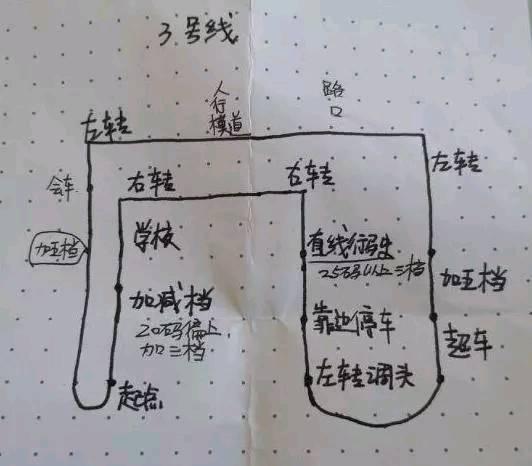 3号线
人行横道
路口
左转
左转
会车
右转
右转
学校
直线行驶
25码以上三档
加五档
加五档
加减档
20码偏上
加三档
靠边停车
超车
起点
左转调头